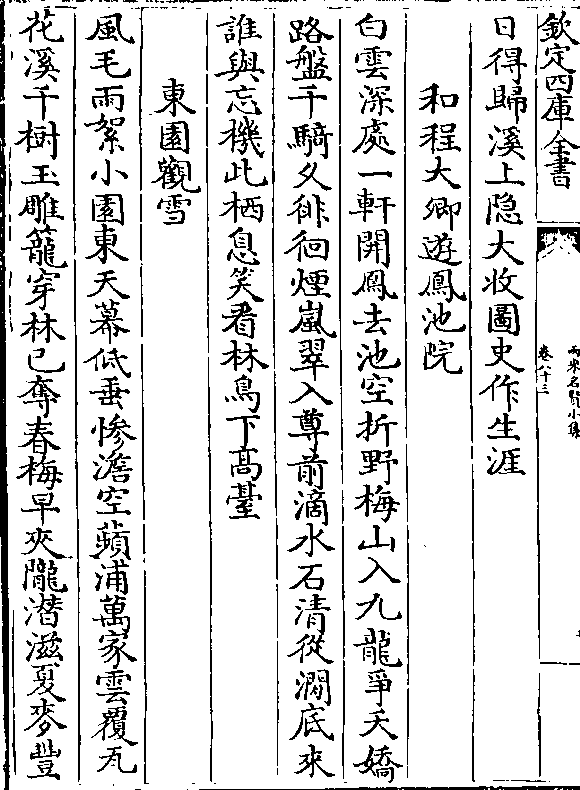 欽定四庫全書
兩宋名賢小集
卷八十三
日得歸溪上隐大收圖史作生涯
和程大卿遊鳳池院
白雲深處一軒開鳳去池空折野梅山入九龍爭夭嬌
路盤千騎久徘徊煙嵐翠入尊前滴水石清從澗底來
誰與忘機此栖息笑看林鳥下高臺
東園觀雪
風毛雨絮小園東天幕低垂慘澹空蘋浦萬家雲覆瓦
花溪千樹玉雕籠穿林已奪春梅早夾隴潜滋夏麥豐